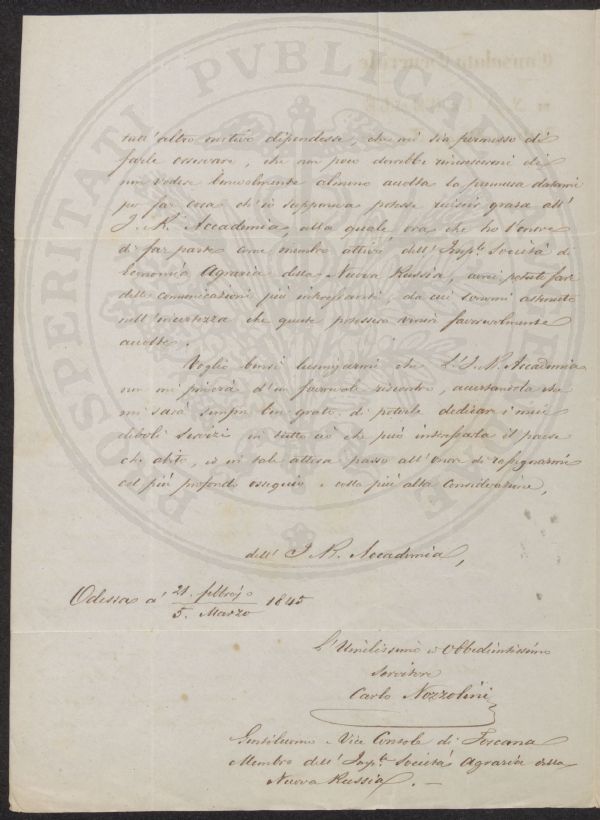 tutt'altro motivo dipendesse, che mi sia permesso di
farle osservare, che non poco dovrebbe rincrescermi di
non vedere benevolmente almeno accolta la premura datami
per far cosa ch'io supponeva potesse riuscir grata all'
I. R. Accademia, alla quale ora che ho l'onore
di far parte come membro attivo dell'Imp.le Società di
Economia Agraria della Nuova Russia, avrei potuto fare
delle comunicazioni più interessanti, da cui sonomi astenuto
nell'incertezza che queste potessero venire favorevolmente
accolte.
Voglio bensì lusingarmi che l'I. R. Accademia
non mi priverà d'un favorevole riscontro, accertandola che
mi sarà sempre ben grato di poterle dedicare i miei
deboli servizi in tutto ciò che può interessarla il paese
che abito, ed in tale attesa passo all'onore di rassegnarmi
col più profondo ossequio e colla più alta considerazione,
dell' I. R. Accademia,
Odessa a' 21. febbrajo / 5. Marzo 1845
L'Umilissimo ed Obbedientissimo
Servitore
Carlo Nozzolini
Gentiluomo Vice Console di Toscana
Membro dell'Imp.le Società Agraria della
Nuova Russia. —
PROSPERITATI PVBLICAE
Consolato Generale